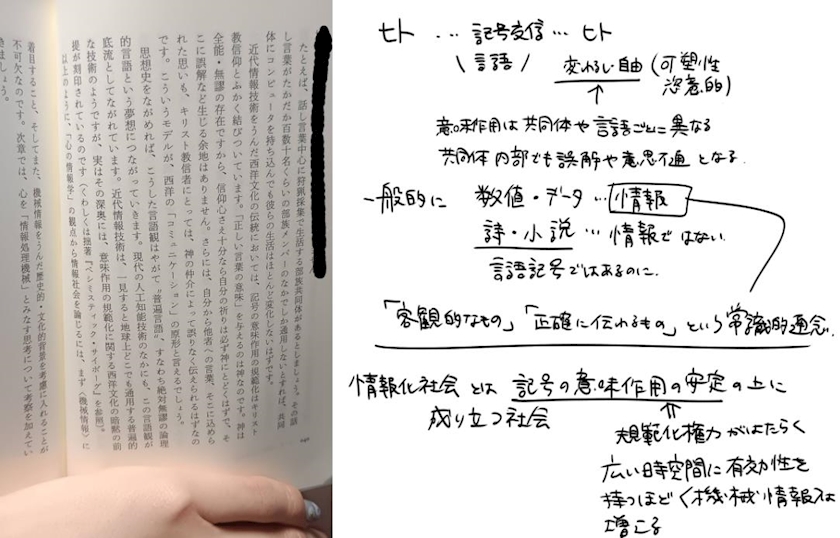 たとえば、話し言葉中心に狩猟採集で生活する部族共同体があるとしましょう。その話
し言葉がたかだか百数十名くらいの部族メンバーのなかでしか通用しないとすれば、共同
体にコンピュータを持ち込んでも彼らの生活はほとんど変化しないはずです。
近代情報技術をうんだ西洋文化の伝統においては、記号の意味作用の規範化はキリスト
教信仰とふかく結びついています。「正しい言葉の意味」を与えるのは神なのです。神は
全能・無謬の存在ですから、信仰心さえ十分なら自分の祈りは必ず神にとどくはずで、そ
こに誤解など生じる余地はありません。さらには、自分から他者への言葉、そこに込めら
れた思いも、キリスト教信者にとっては、神の仲介によって誤りなく伝えられるはずなの
です。こういうモデルが、西洋の「コミュニケーション」の原形と言えるでしょう。
思想史をながめれば、こうした言語観はやがて〝普遍言語〟、すなわち絶対無謬の論理
的言語という夢想につながっていきます。現代の人工知能技術のなかにも、この言語観が
底流としてながれています。近代情報技術は、一見すると地球上どこでも通用する普遍的
な技術のようですが、実はその深奥には、意味作用の規範化に関する西洋文化の暗黙の前
提が刻印されているのです(くわしくは拙著『ペシミスティック・サイボーグ』を参照)。
以上のように、「心の情報学」の観点から情報社会を論じるには、まず〈機械情報〉に
着目すること、そしてまた、機械情報をうんだ歴史的・文化的背景を考慮に入れることが
不可欠なのです。次章では、心を「情報処理機械」とみなす思考について考察を加えてい
きましょう。
ヒト … 記号交信 … ヒト
\ 言語 /
変わるし自由 (可塑性
恣意的)
意味作用は共同体や言語ごとに異なる
共同体内部でも誤解や意思不通となる.
一般的に 数値・データ … 情報
詩・小説 … 情報ではない.
言語記号ではあるのに.
「客観的なもの」「正確に伝わるもの」という常識的通念.
情報化社会とは 記号の意味作用の安定の上に
成り立つ社会
規範化権力がはたらく
広い時空間に有効性を
持つほど〈機械情報〉は
増こる